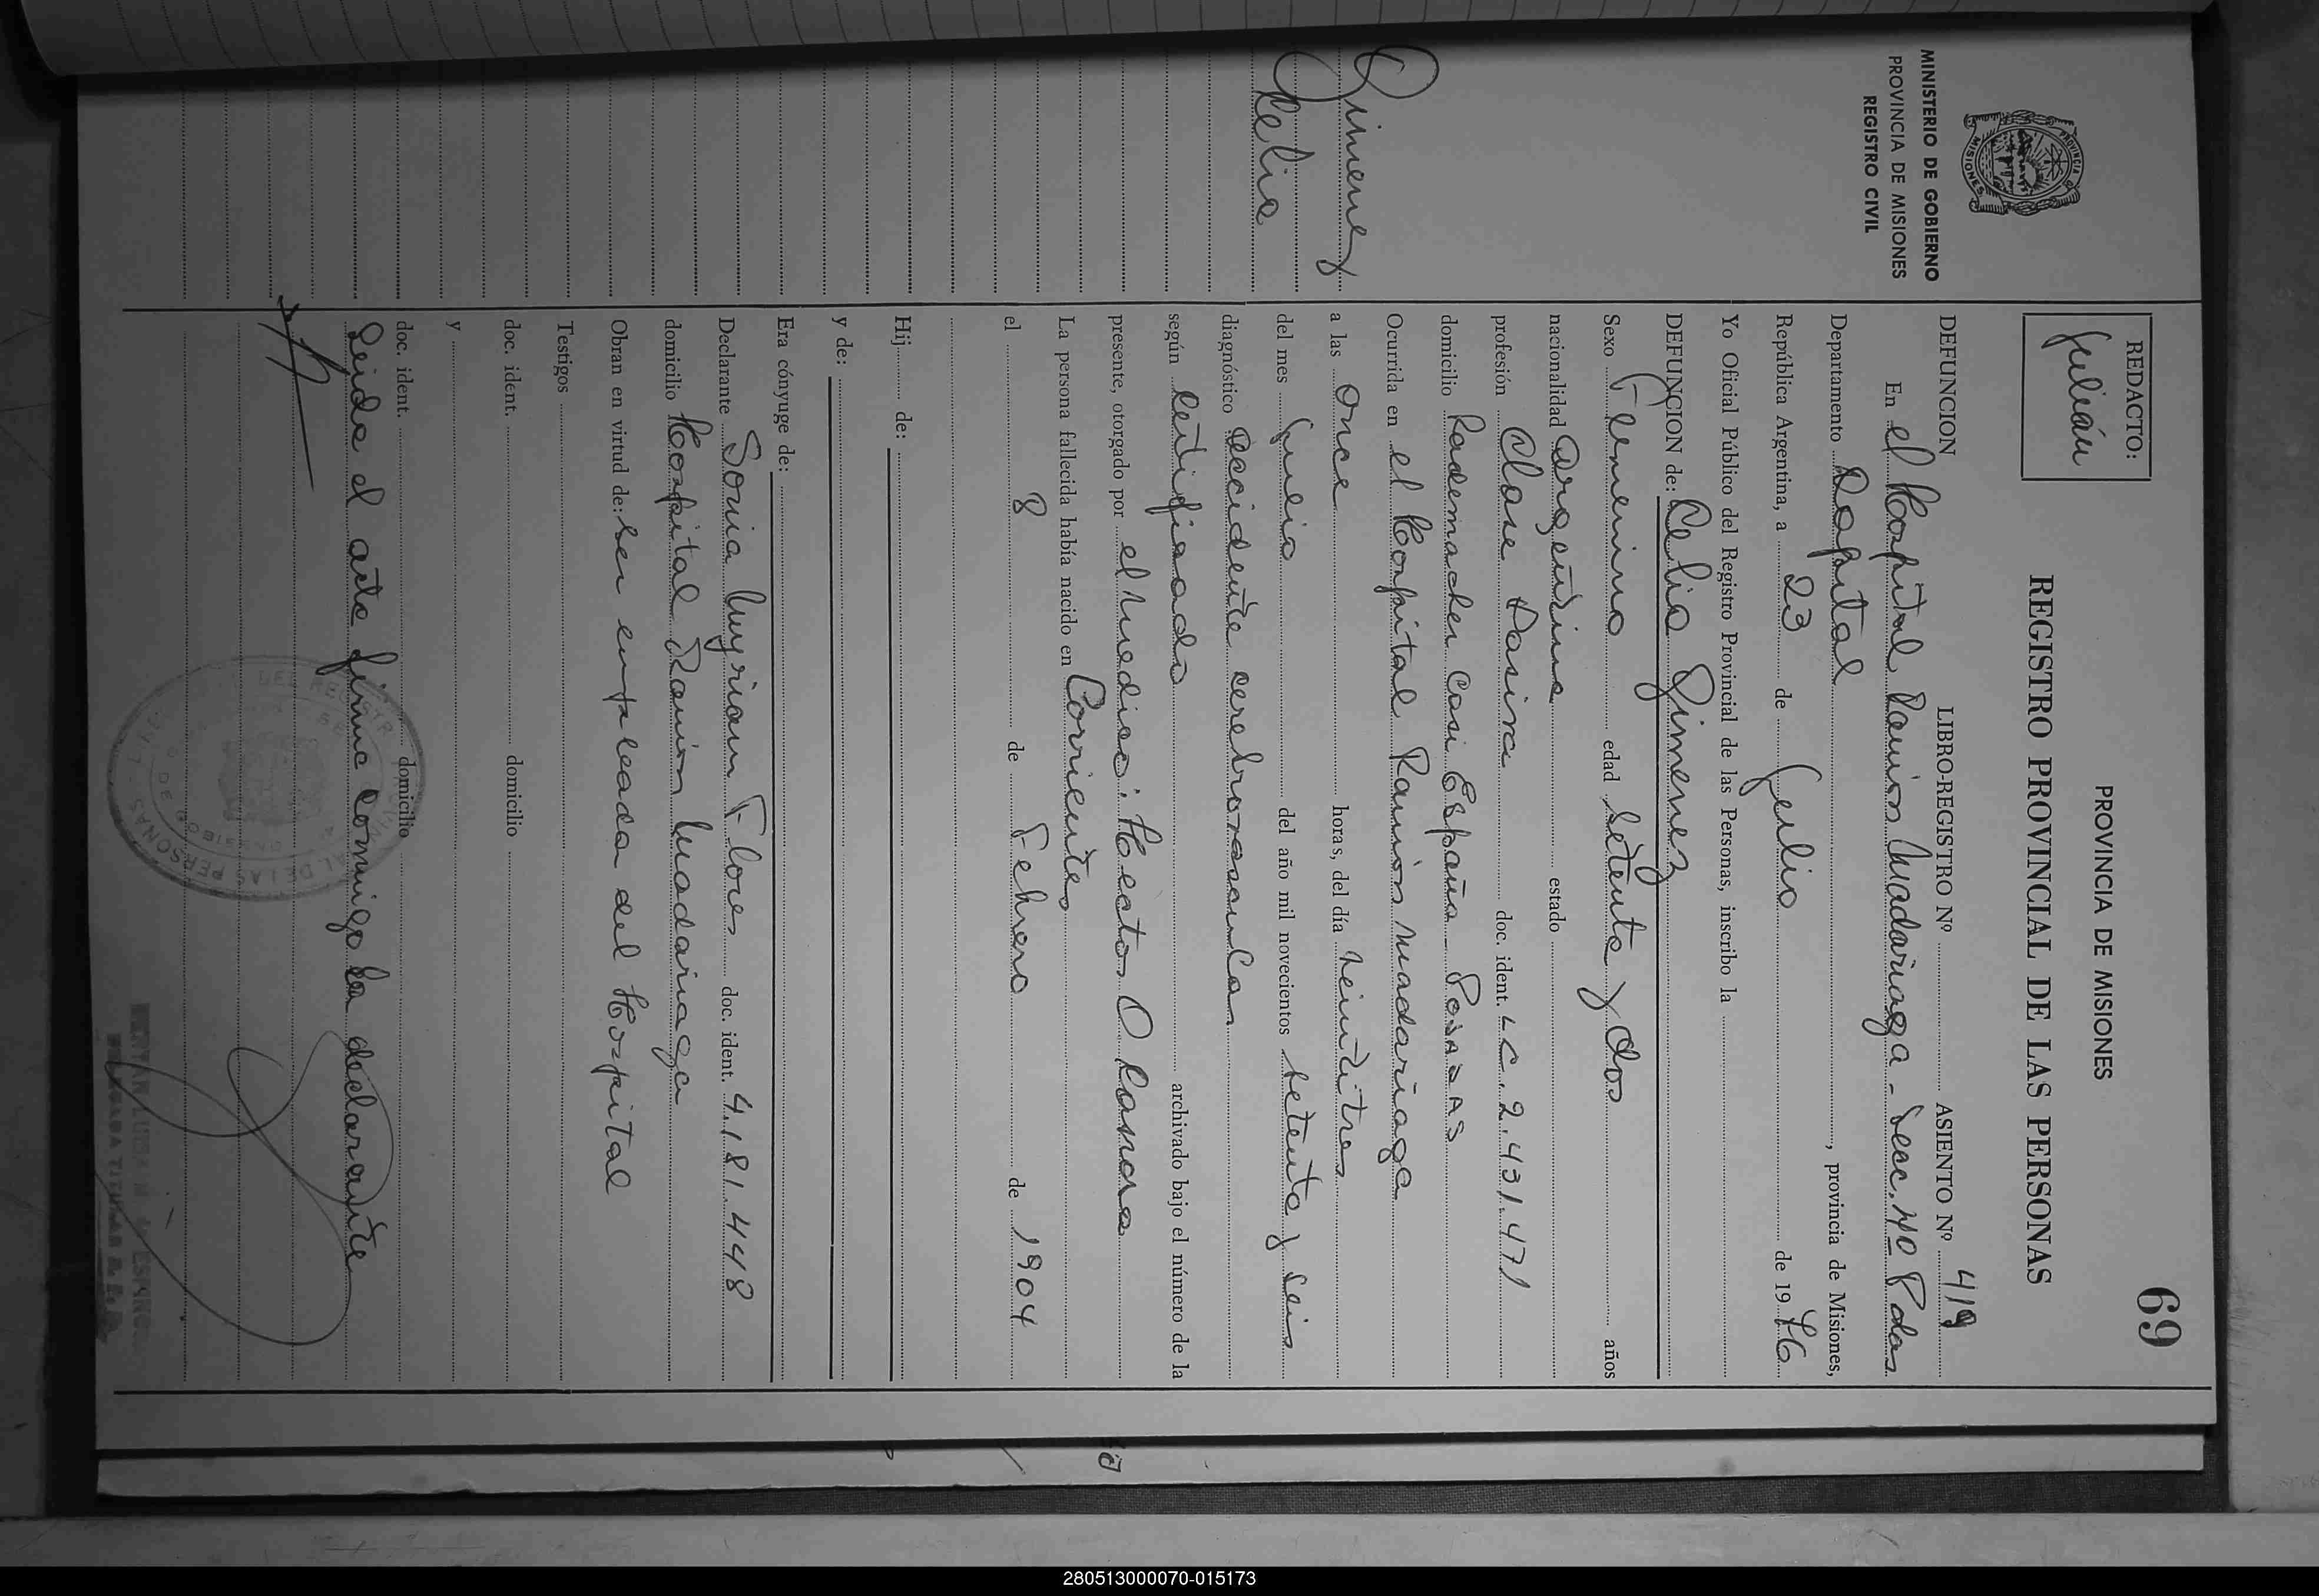 69
PROVINCIA DE MISIONES
REGISTRO PROVINCIAL DE LAS PERSONAS
REDACTO:
Julián
MINISTERIO DE GOBIERNO
PROVINCIA DE MISIONES
REGISTRO CIVIL
PROVINCIA
MISIONES
Gimenez
Celia
DEFUNCION LIBRO-REGISTRO Nº ASIENTO Nº 419
En el Hospital Ramón Madariaga - Secc. 4º Pdas
Departamento Capital, provincia de Misiones,
República Argentina, a 23 de Julio de 1976
Yo Oficial Público del Registro Provincial de las Personas, inscribo la
DEFUNCION de: Celia Gimenez
Sexo Femenino edad Setenta y dos años
nacionalidad Argentina estado
profesión Clase Pasiva doc. ident. L C. 2.431.471
domicilio Rademacher casi España - Posadas
Ocurrida en el Hospital Ramón Madariaga
a las once horas, del día veintitres
del mes Julio del año mil novecientos setenta y seis
diagnóstico accidente cerebrovascular
según certificado archivado bajo el número de la
presente, otorgado por el medico: Hector O
La persona fallecida había nacido en Corrientes
el 8 de Febrero de 1904
Hij de:
y de:
Era cónyuge de:
Declarante Sonia Myriam Flores doc. ident. 4.181.448
domicilio Hospital Ramón Madariaga
Obran en virtud de: ser empleada del Hospital
Testigos
doc. ident. domicilio
y
doc. ident. domicilio
Leida el acta firma conmigo la declarante
280513000070-015173